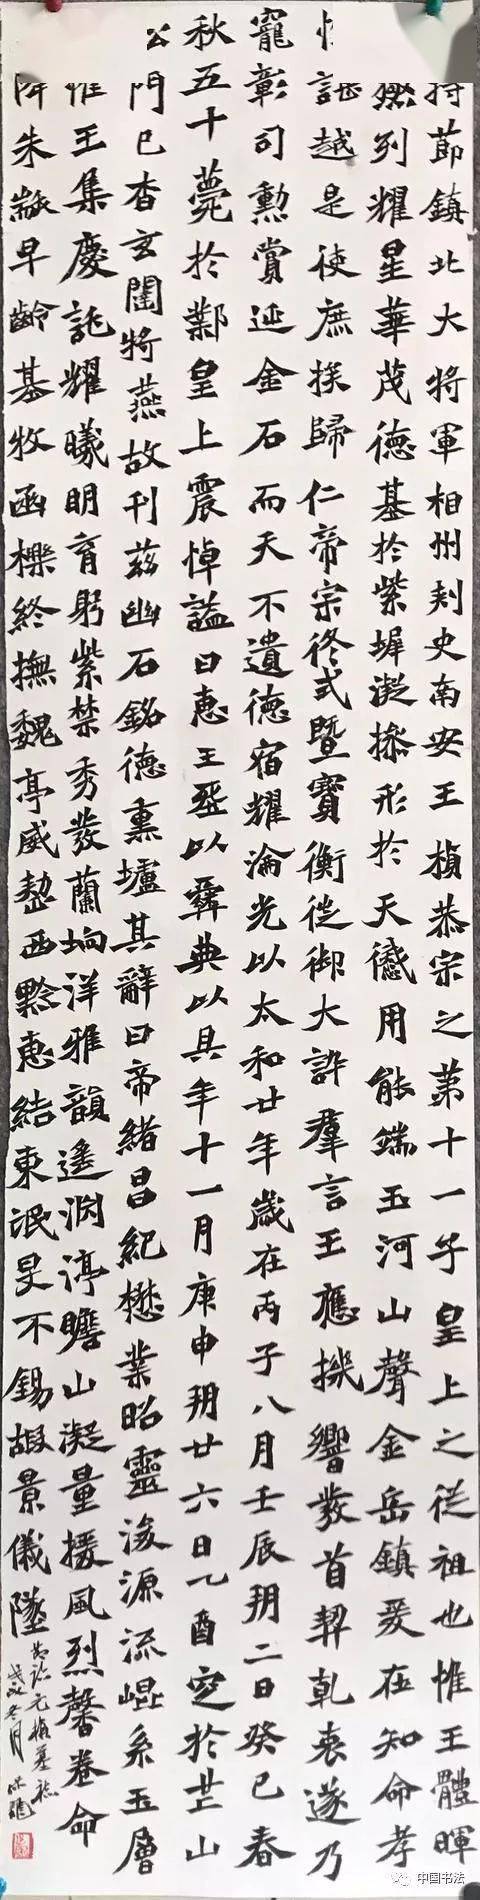 持節鎮北大將軍相州刾史南安王楨恭宗之苐十一子皇上之從祖也惟王體暉
列耀星華茂德基於紫墀凝操形於天感用能端玉河山聲金岳鎮爰在知命孝
性諶越是使庶族歸仁帝宗攸式暨寶衡徙御大訊羣言王應機響發首契乾衷遂乃
寵彰司勳賞延金石而天不遺德宿耀淪光以太和廿年歲在丙子八月壬辰朔二日癸巳春
秋五十薨於鄴皇上震悼諡曰惠王葬以彝典以其年十一月庚申朔廿六日乙酉窆於芒山
門已杳玄闥將蕪故刊茲幽石銘德熏壚其辭曰帝緒昌紀懋業昭靈浚源流崐系玉層
惟王集慶託耀曦明育躬紫禁秀發蘭坰洋雅韻遙淵渟瞻山凝量援風烈馨卷命
降朱黻早齡基牧函櫟終撫魏亭威整西黔惠結東氓旻不錫嘏景儀墜
节临元楨墓志
戊戌冬月
中国书法